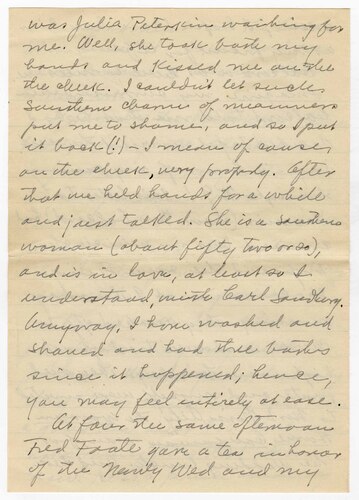 was Julia Peterkin waiting for
me. Well, she took both my
hands and kissed me on the
the cheek. I couldn't let such
Southern charm of manners
put me to shame, and so I put
it back (!) – I mean of course
on the cheek, very properly. After
that we held hands for a while
and just talked. She is a southern
woman (about fifty two or so),
and is in love, at least so I
understand, with Carl Sandburg.
Anyway, I have washed and
shaved and had three baths
since it happened; hence,
you may feel entirely at ease.
At four the same afternoon
Fred Foate gave a tea in honor
of the Newly Wed and my